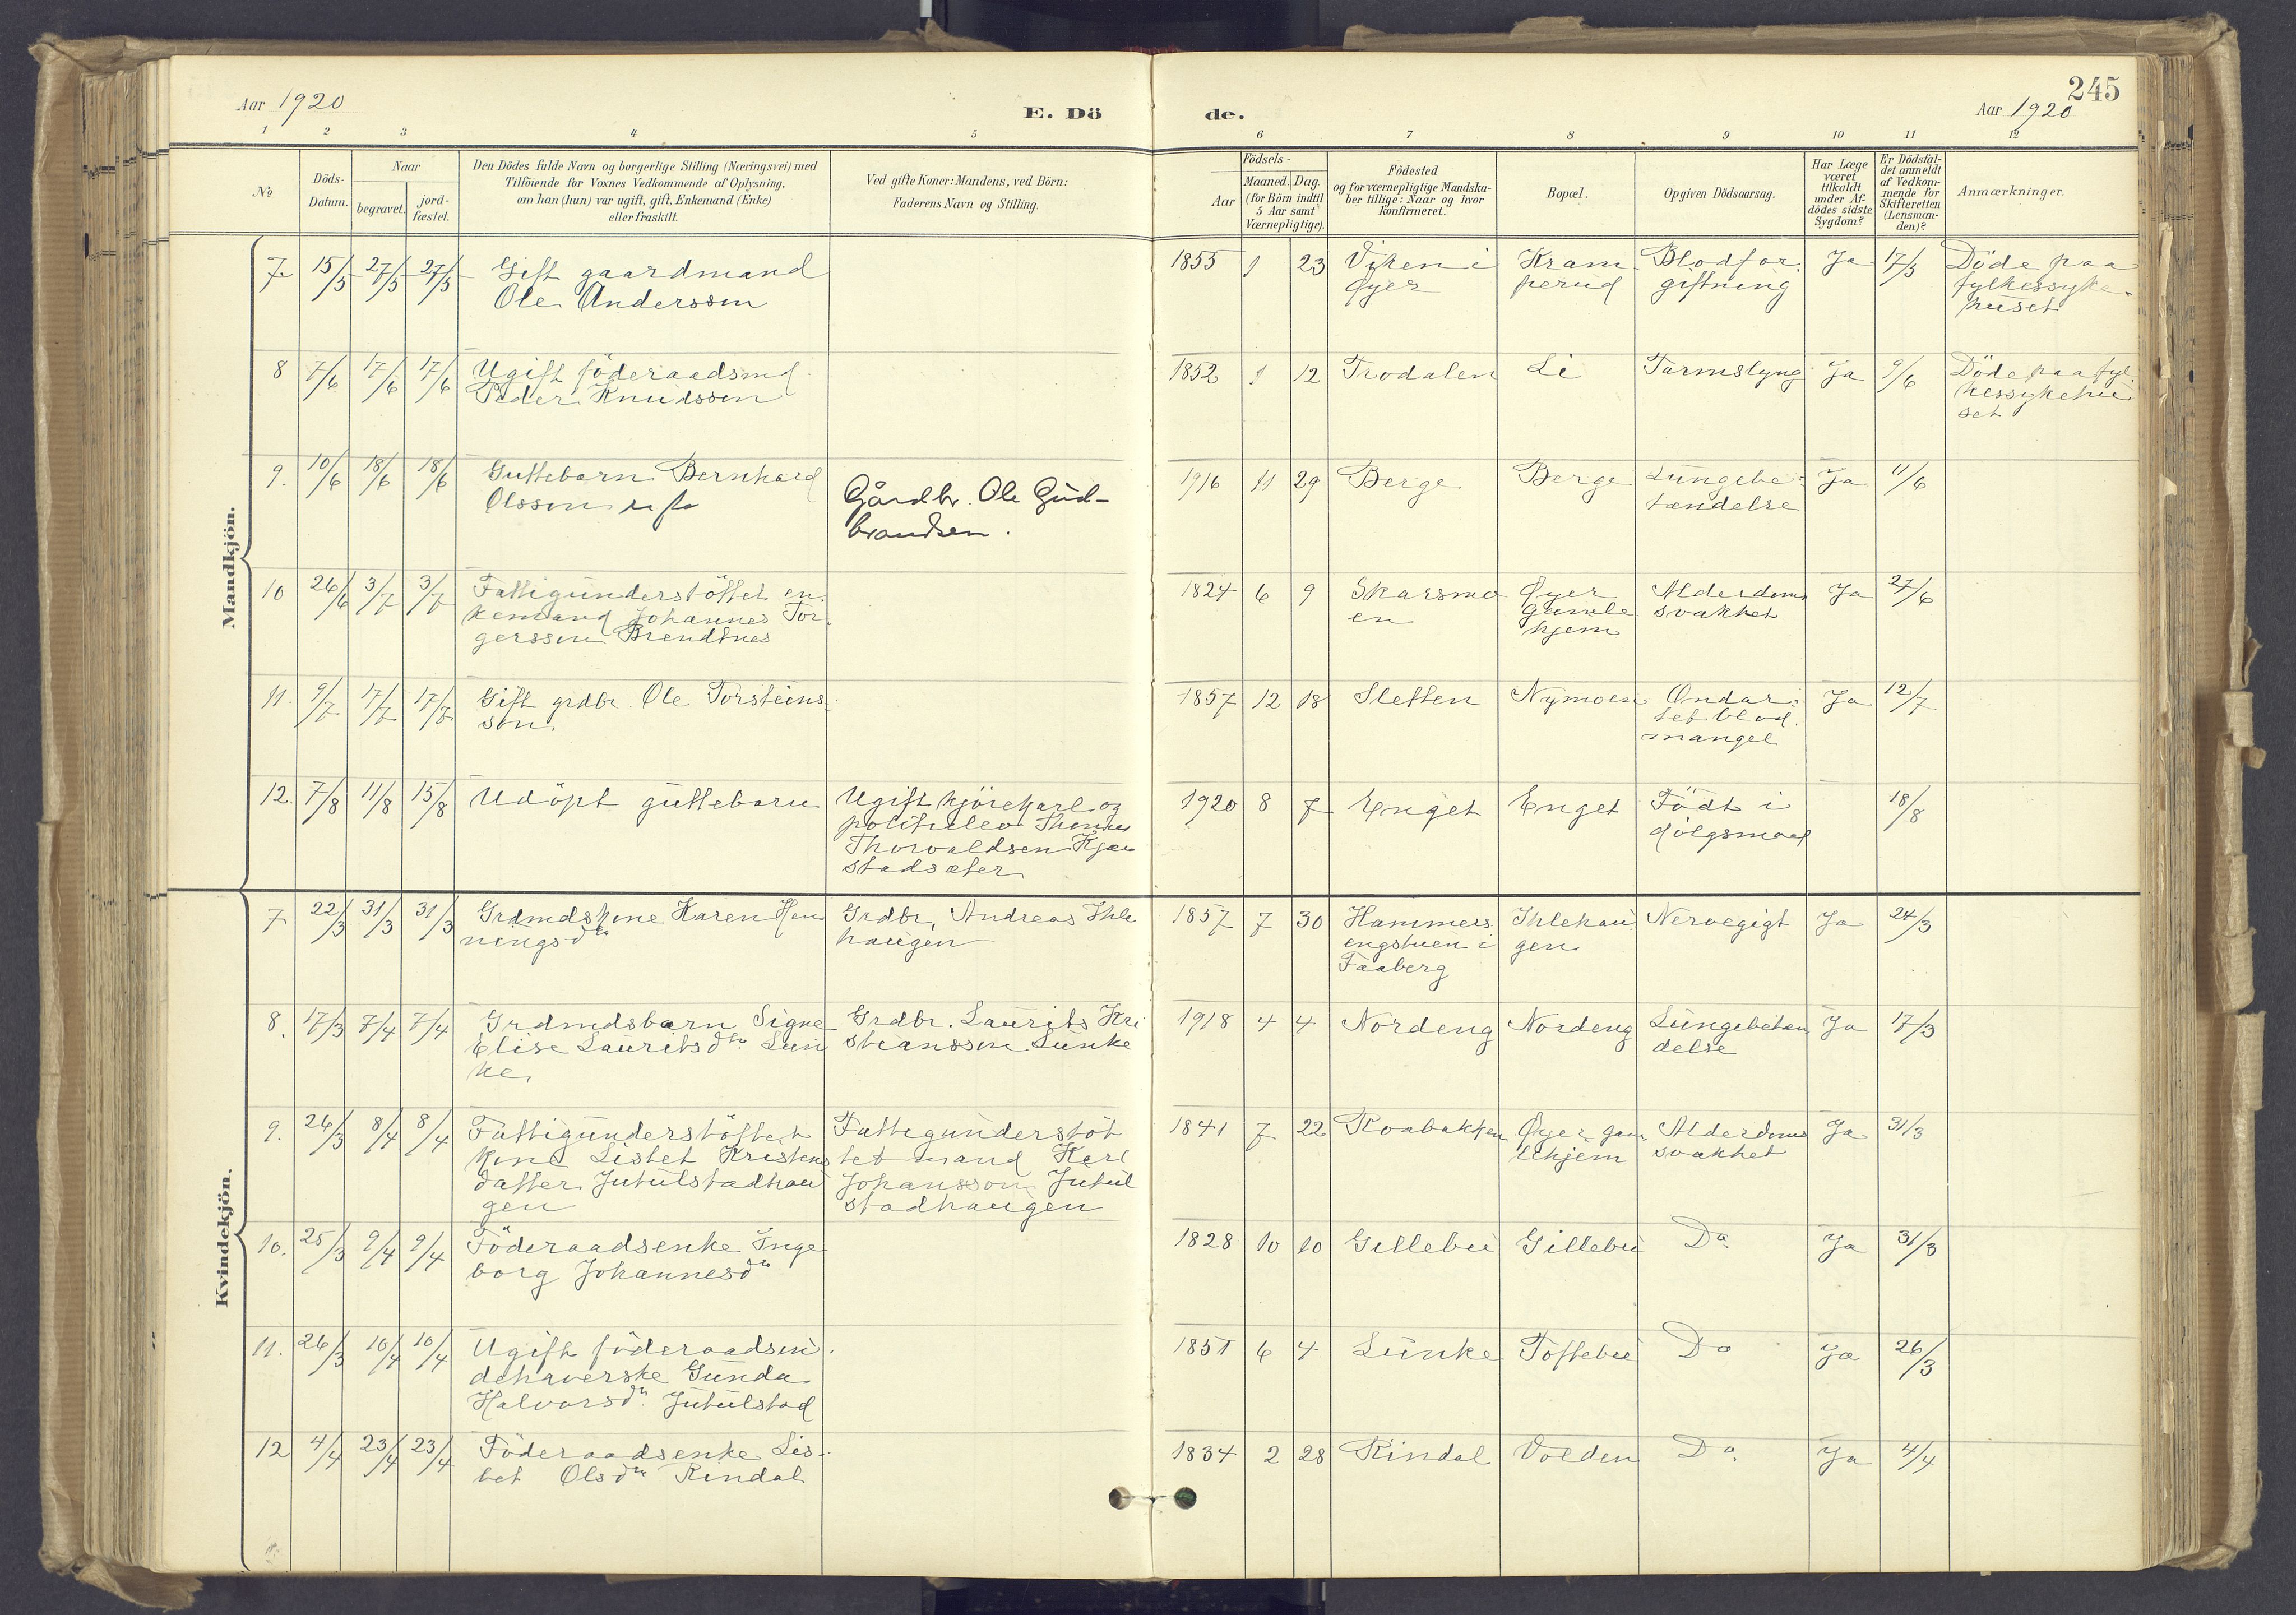 Aar 1920
E. Dö
de.
245
Aar 1920
1 2 3 4 5 6 7 8 9 10 11 12
No
Döds-
Datum.
Naar
begravet.
jord-
fæstet.
Den Dödes fulde Navn og borgerlige Stilling (Næringsvei) med
Tilföiende for Voxnes Vedkommende af Oplysning,
om han (hun) var ugift, gift, Enkemand (Enke)
eller fraskilt.
Ved gifte Koner: Mandens, ved Börn:
Faderens Navn og Stilling.
Födsels-
Aar
Maaned. Dag.
(for Börn indtil
5 Aar samt
Værnepligtige).
Födested
og for værnepligtige Mandska-
ber tillige: Naar og hvor
konfirmeret.
Bopæl.
Opgiven Dödsaarsag.
Har Læge
været
tilkaldt
under Af-
dödes sidste
Sygdom?
Er Dödsfal-
det anmeldt
af Vedkom-
mende for
Skifteretten
(Lensman-
den)?
Anmærkninger.
Mandkjön.
7. 15/5 27/5 27/5 Gift gaardmand
Ole Anderssen
1855 1 23 Viken i
Øyer
Kram
perud
Blodfor
giftning
Ja 17/5 Döde paa
fylkessyke-
huset
8 7/6 17/6 17/6 Ugift föderaadsmd.
Peder Knudssen
1852 1 12 Trodalen Li Tarmslyng Ja 9/6 Döde paa fyl
kessykehu
set
9. 10/6 18/6 18/6 Guttebarn Bernhard
Olssen
Gårdbr. Ole Gud-
brandsen.
1916 11 29 Berge Berge Lungebe-
tændelse
Ja 11/6
10 26/6 3/7 3/7 Fattigunderstöttet en-
kemand Johannes Tor-
gerssen Brendtnes
1824 6 9 Skarsmo
en
Øyer
gamle
hjem
Alderdoms
svakhet
Ja 27/6
11. 9/7 17/7 17/7 Gift grdbr. Ole Torsteins-
sön.
1857 12 18 Sletten Nymoen Ondar-
tet blod
mangel
Ja 12/7
12. 7/8 11/8 15/8 Udöpt guttebarn
Ugift kjörekarl og
politielev
Thorvaldsen Kjæ
stadsæter
1920 8 7 Enget Enget Födt i
dölgsmaal
18/8
Kvindekjön.
7 22/3 31/3 31/3 Grdmdskone Karen Hen
ningsdtr
Grdbr. Andreas Ihle
haugen
1857 7 30 Hammers
engstuen i
Faaberg
Ihlehau
gen
Nervegigt Ja 24/3
8. 17/3 7/4 7/4 Grdmdsbarn Signe
Elise Lauritsdtr. Lun
ke.
Grdbr. Laurits Kri
stianssen Lunke
1918 4 4 Nordeng Nordeng Lungebetæn
delse
Ja 17/3
9. 26/3 8/4 8/4 Fattigunderstöttet
kone Lisbet Kristens
datter Jutulstadhau
gen
Fattigunderstöt
tet mand Karl
Johanssen Jutul
stadhaugen
1841 7 22 Roabakken Øyer gam
lehjem
Alderdoms
svakhet
Ja 31/3
10. 25/3 9/4 9/4 Föderaadsenke Inge
borg Johannesdtr
1828 10 10 Gillebu Gillebu Do Ja 31/3
11. 26/3 10/4 10/4 Ugift föderaadsin
dehaverske Gunda
Halvorsdtr. Jutulstad
1851 6 4 Lunke Toftebu Do Ja 26/3
12 4/4 23/4 23/4 Föderaadsenke Lis-
bet Olsdtr Rindal
1834 2 28 Rindal Volden Do. Ja 4/4